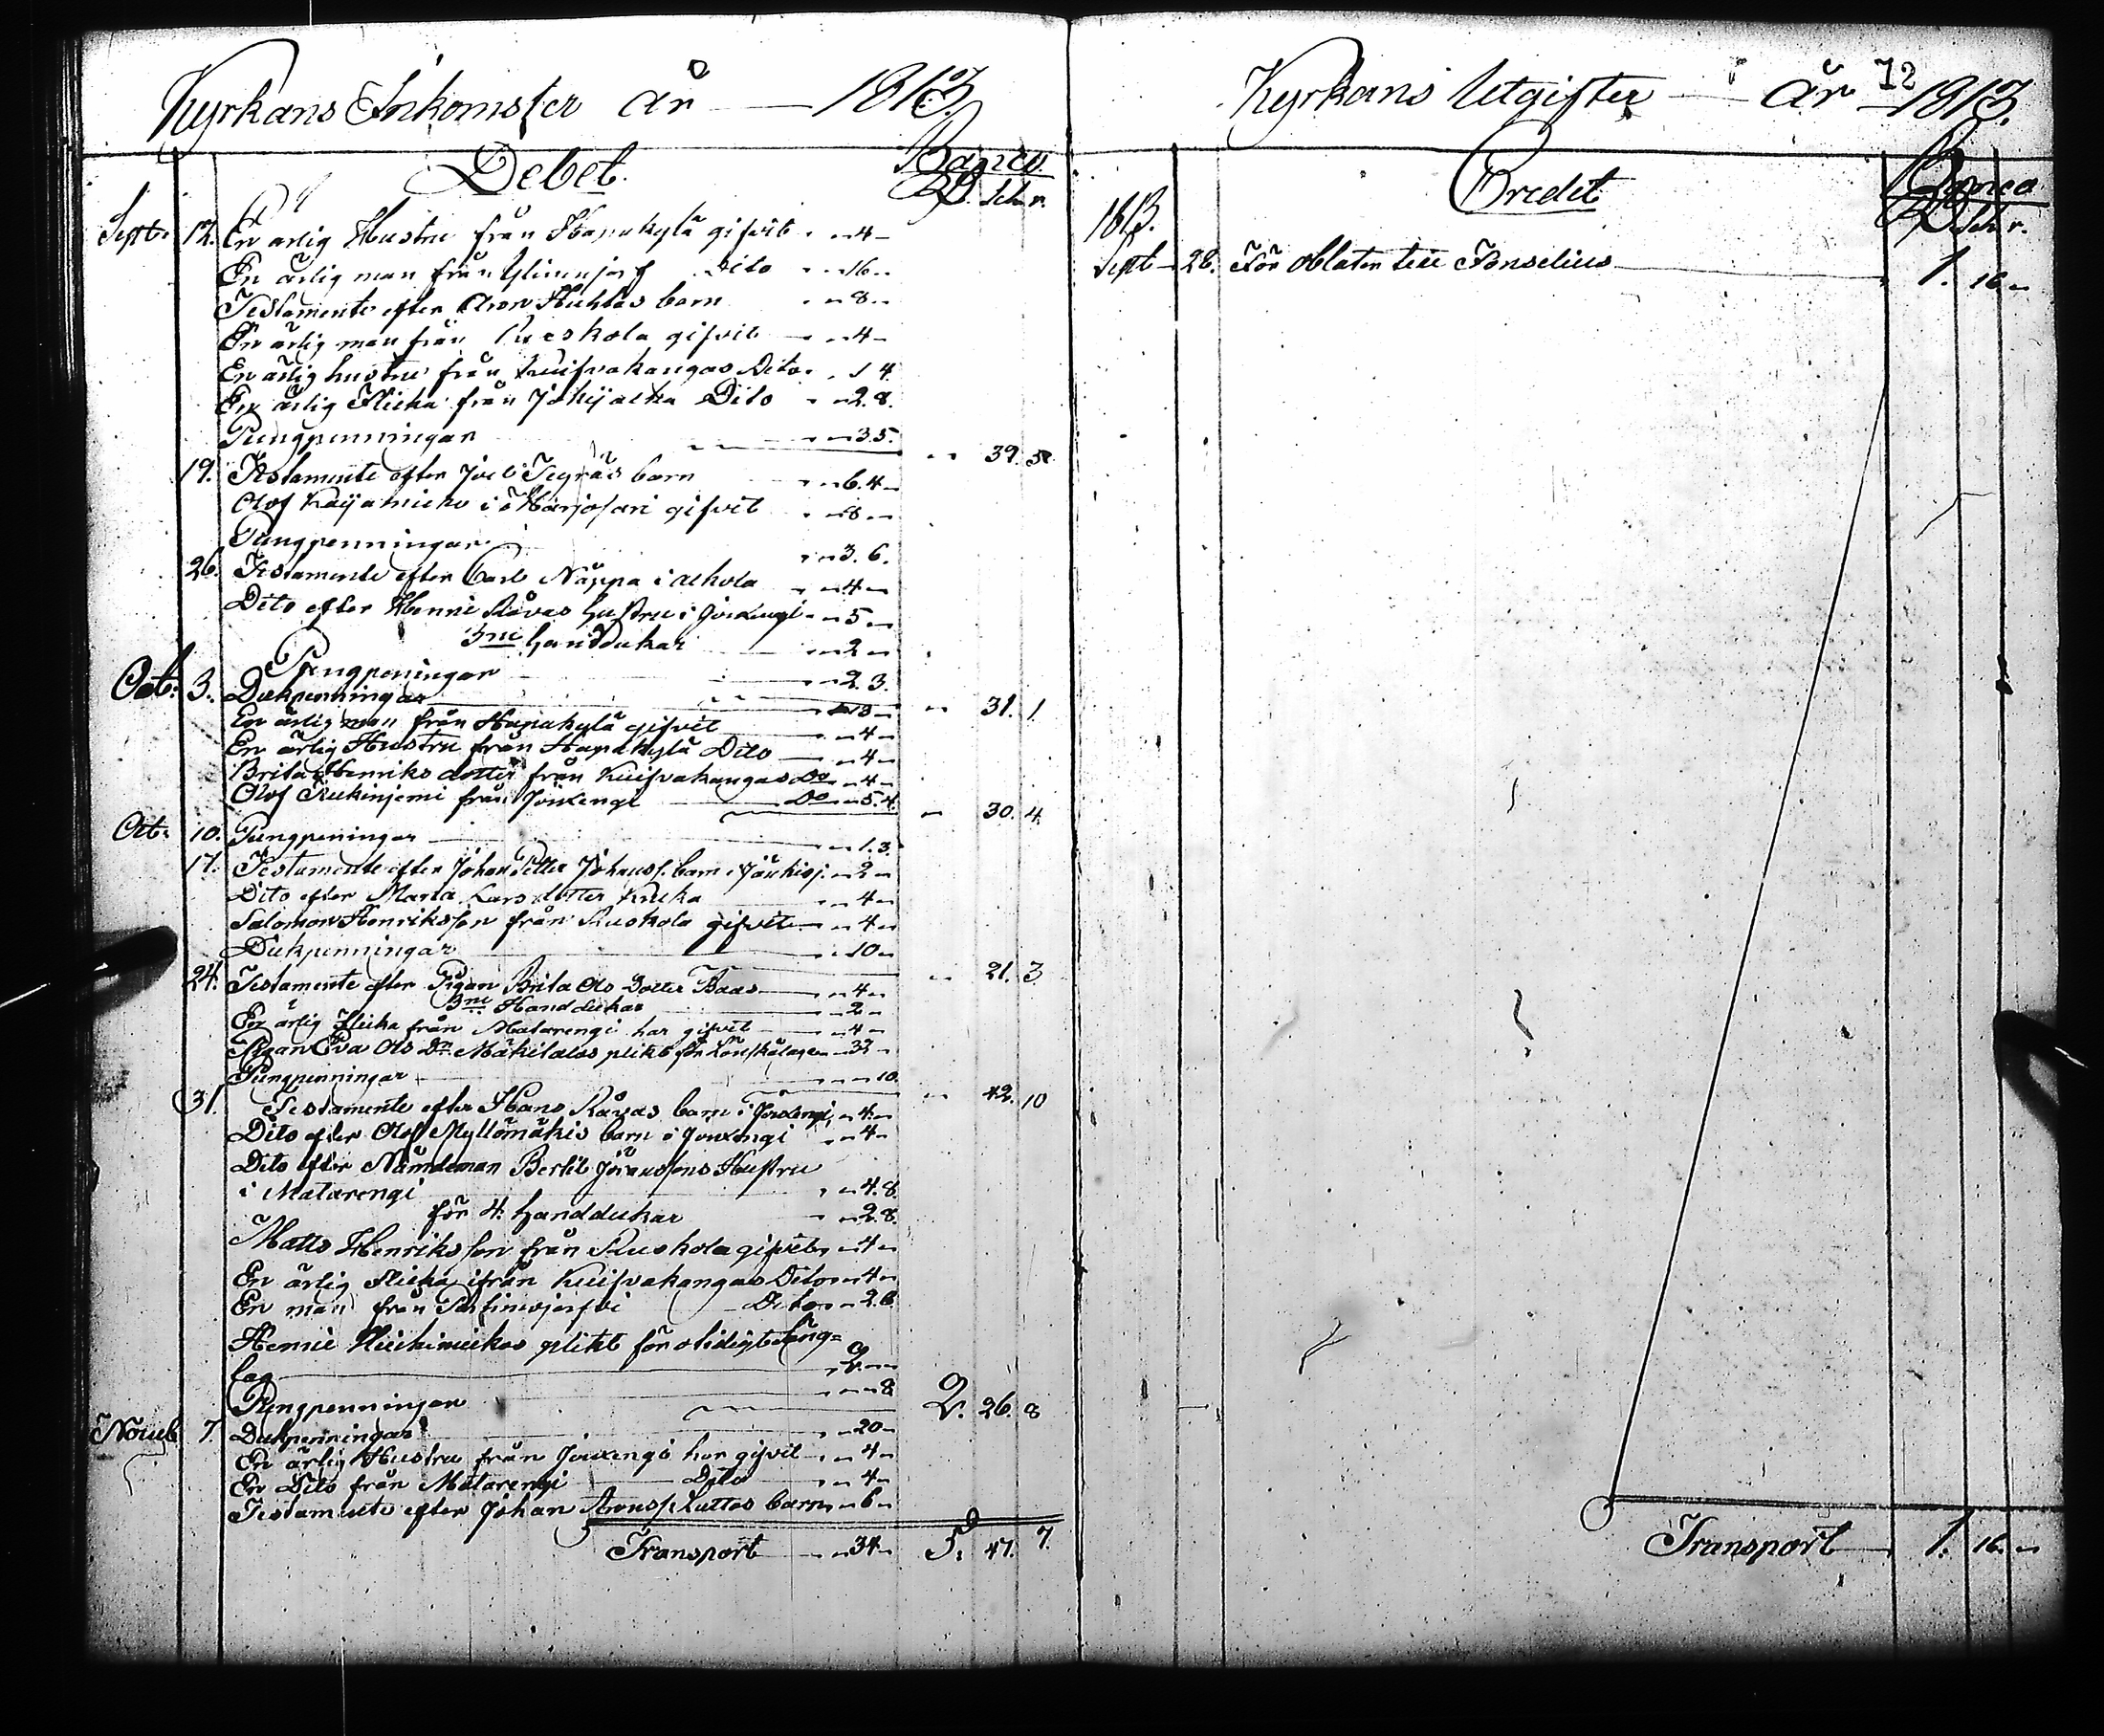 Kyrkans Inkomster år — 1813.
Debet. Banco.
Rd. sch. r.
Sept. 12. En ärlig Hustru från Hapakylä gifvit „ 4 „
En ärlig man från Dito „ 16 „
Testamente efter Aron Huhtas barn „ 8 „
En ärlig man från Ruskola gifvit „ 4 „
En ärlig hustru från Kuifvakangas Dito „ 1 4.
En ärlig Flicka från Dito „ 2. 8.
Pungpenningar „ 3. 5. „ 39. 5
19. Testamente efter barn „ 6. 4 „
Olof i gifvit „ 8 „
Pungpenningar „ 3. 6.
26. Testamente efter Carl Näppa i Alkola „ 4 „
Dito efter Henric Råvas hustru i Jouxengi „ 5 „
3ne handdukar „ 2 „
Pungpeningar „ 2. 3. „ 31. 1.
Oct: 3. Dukpenningar „ 13 „
En ärlig man från Hapakylä gifvit „ 4 „
En ärlig Hustru från Hapakylä Dito „ 4 „
Brita Henriks dotter från Kuifvakangas Do „ 4 „
Olof Rukinjemi från Jouxengi Do „ 5. 4. „ 30. 4.
Oct: 10. Pungpeningar „ 1. 3.
17. Testamente efter Johan Petter Johanss. barn i „ 2 „
Dito efter Maria Larsdotter Kruka „ 4 „
Salomon Henriksson från Ruskola gifvit „ 4 „
Dukpenningar „ 10 „ „ 21. 3
24. Testamente efter Pigan Brita Ols Dotter Baas „ 4 „
3ne Handdukar „ 2 „
En ärlig Flicka från Matarengi har gifvit „ 4 „
Pigan Eva Ols Dr. plikt för Lönskaläge „ 32 „
Pungpenningar „ „ 10. „ 42. 10
31. Testamente efter Hans Råvas barn i Jouxengi „ 4 „
Dito efter Olof Myllömäkis barn i Jouxengi „ 4 „
Dito efter Nämdeman Bertil Jöranssons Hustru
i Matarengi „ 4. 8.
för 4. handdukar „ 2. 8.
Matts Henriksson från Ruskola gifvit „ 4 „
En ärlig Flicka ifrån Kuifvakangas Dito „ 4 „
En man från Dito „ 2. 8
Henric plikt för otidigt säng=
lag 2. „ „
Pungpenningar „ „ 8 2. 26. 8
Novemb 7. Dukpenningar „ 20 „
En ärlig Hustru från Jouxengi har gifvit „ 4 „
En Dito från Matarengi Dito „ 4 „
Testamente efter Johan Aronss. Ruttas barn „ 6 „
Transport „ 34 „ 5. 47. 7.
72
Kyrkans Utgifter — år 1813.
Credit Banco
Rd. sch. r.
1813.
Sept 28. För oblater till Fonselius 1. 16 „
Transport 1. 16. „